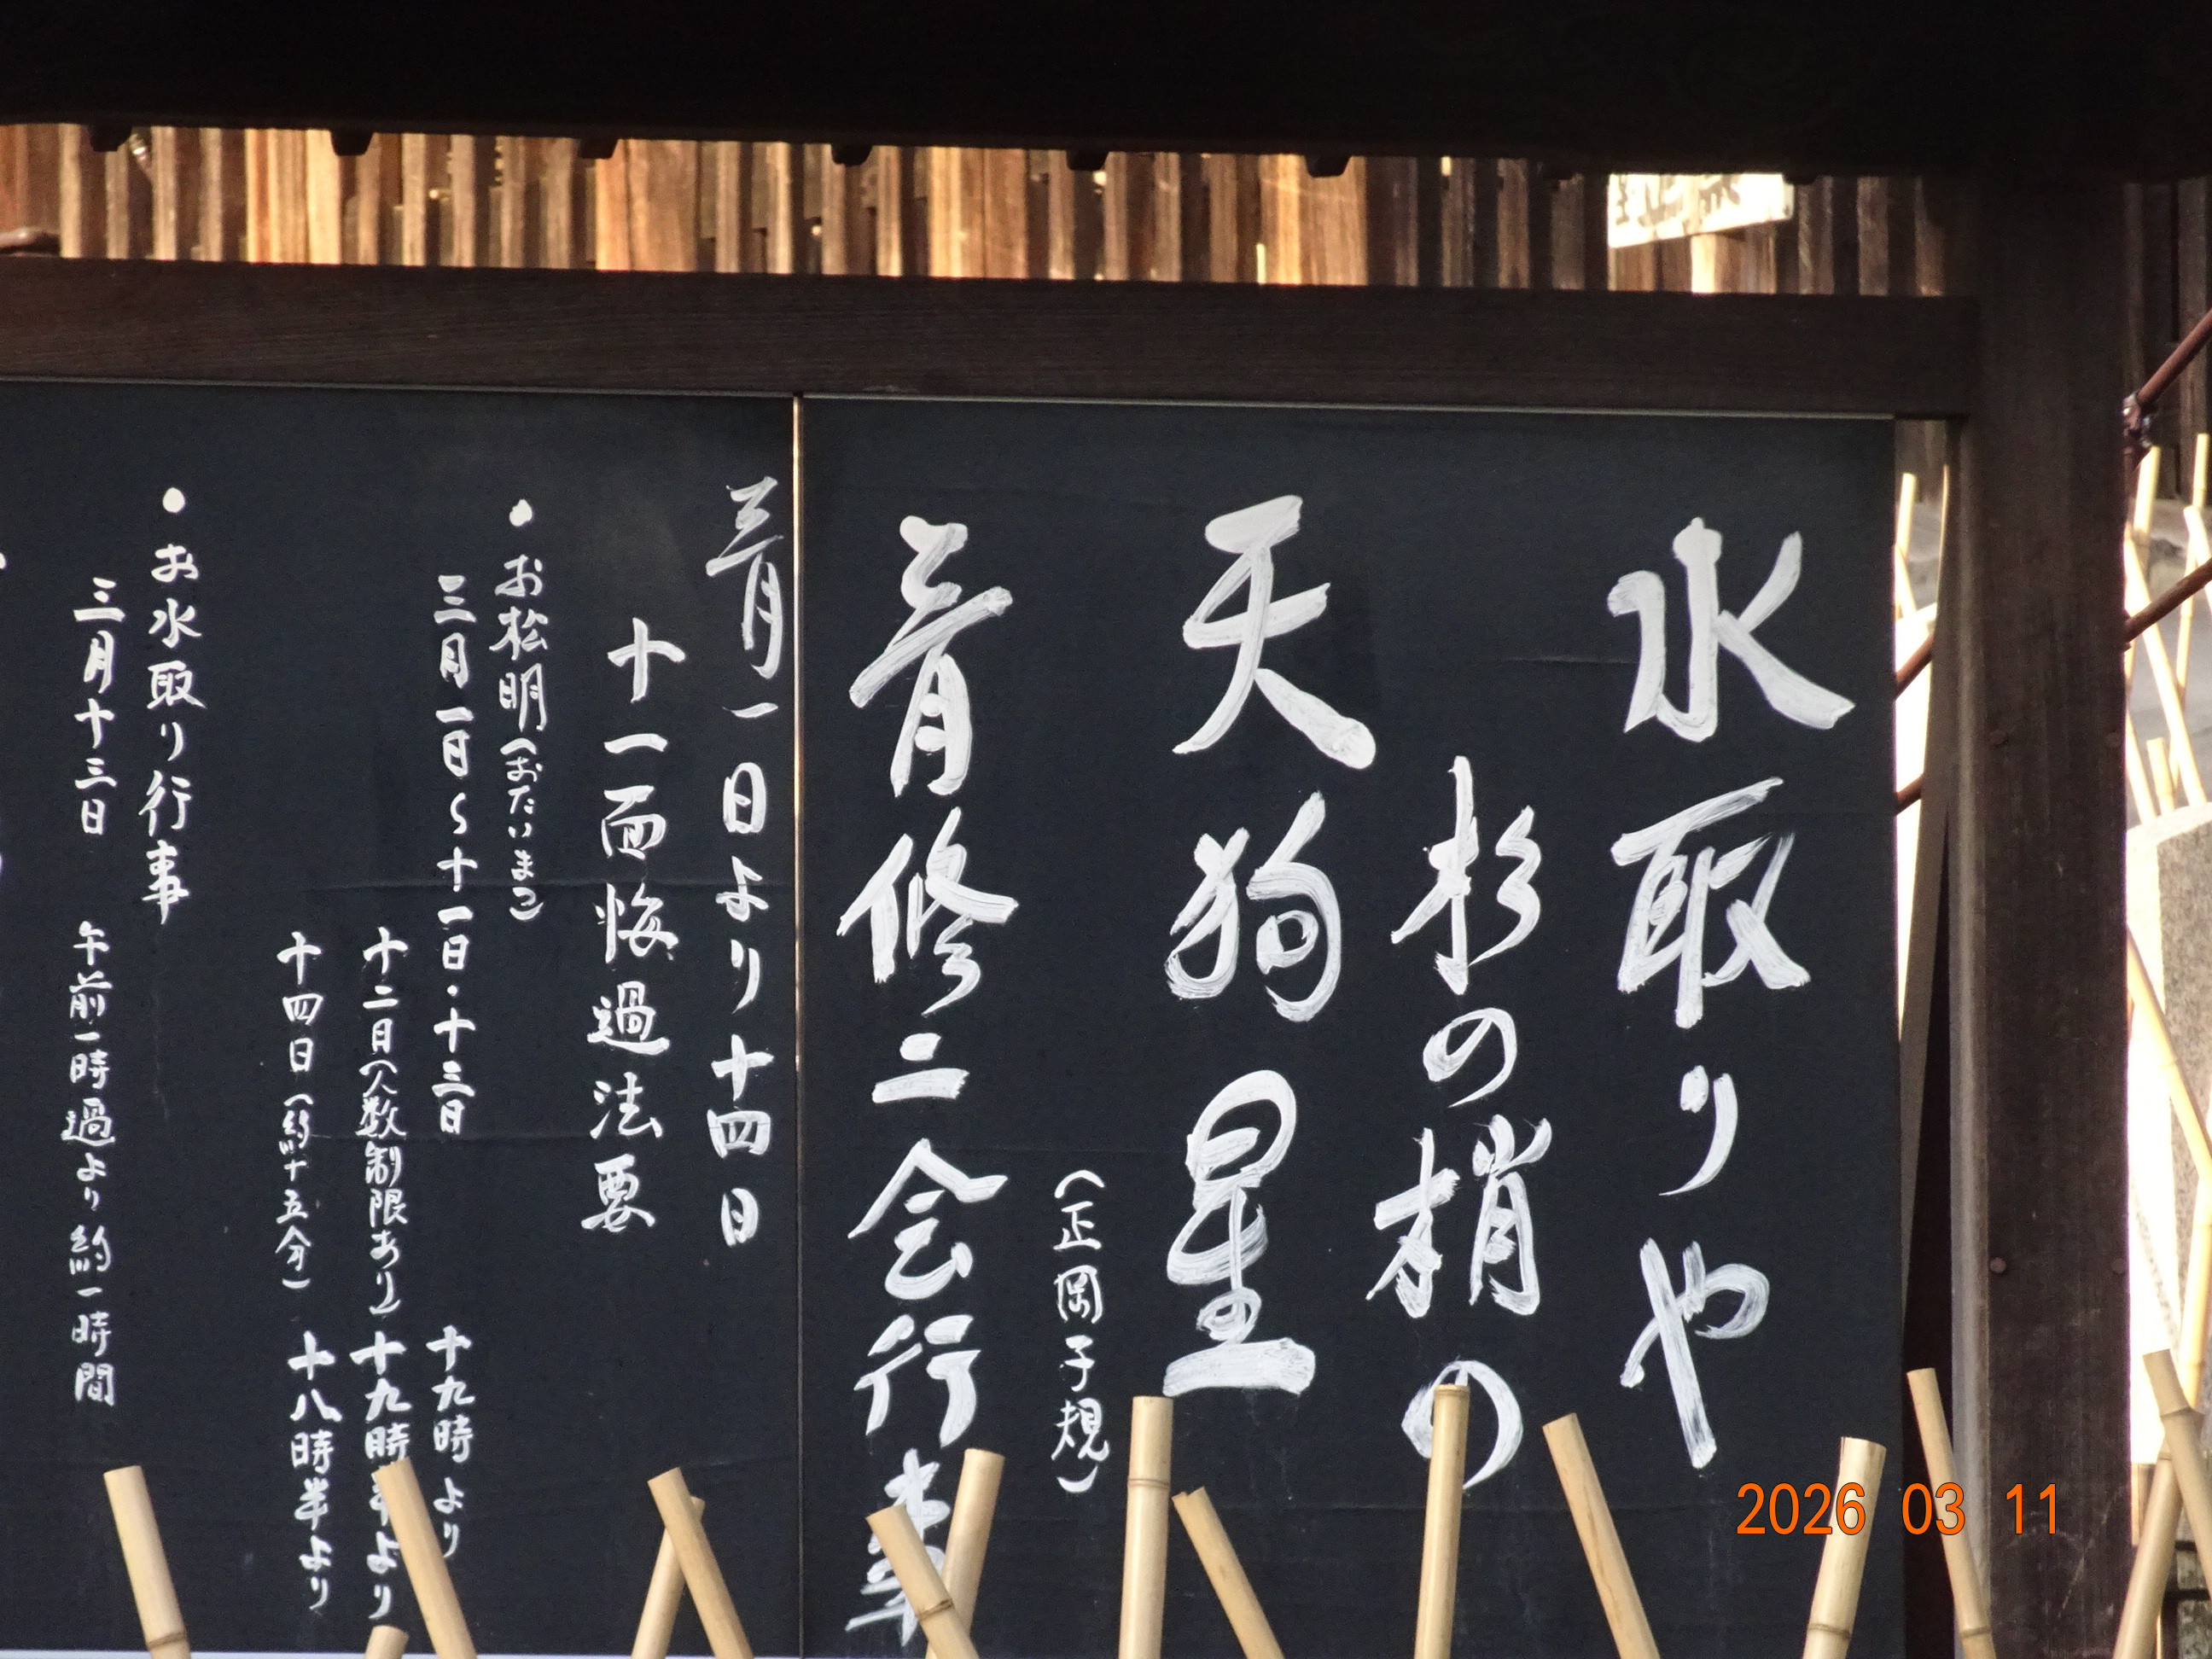 水取りや
杉の梢の
天狗星
(正岡子規)
三月修二会行事
三月一日より十四日
十一面悔過法要
・お松明(おたいまつ)
三月一日〜十一日・十三日 十九時より
十二日(人数制限あり) 十九時半より
十四日(約十五分) 十八時半より
・お水取り行事
三月十三日 午前一時過より約一時間
2026 03 11